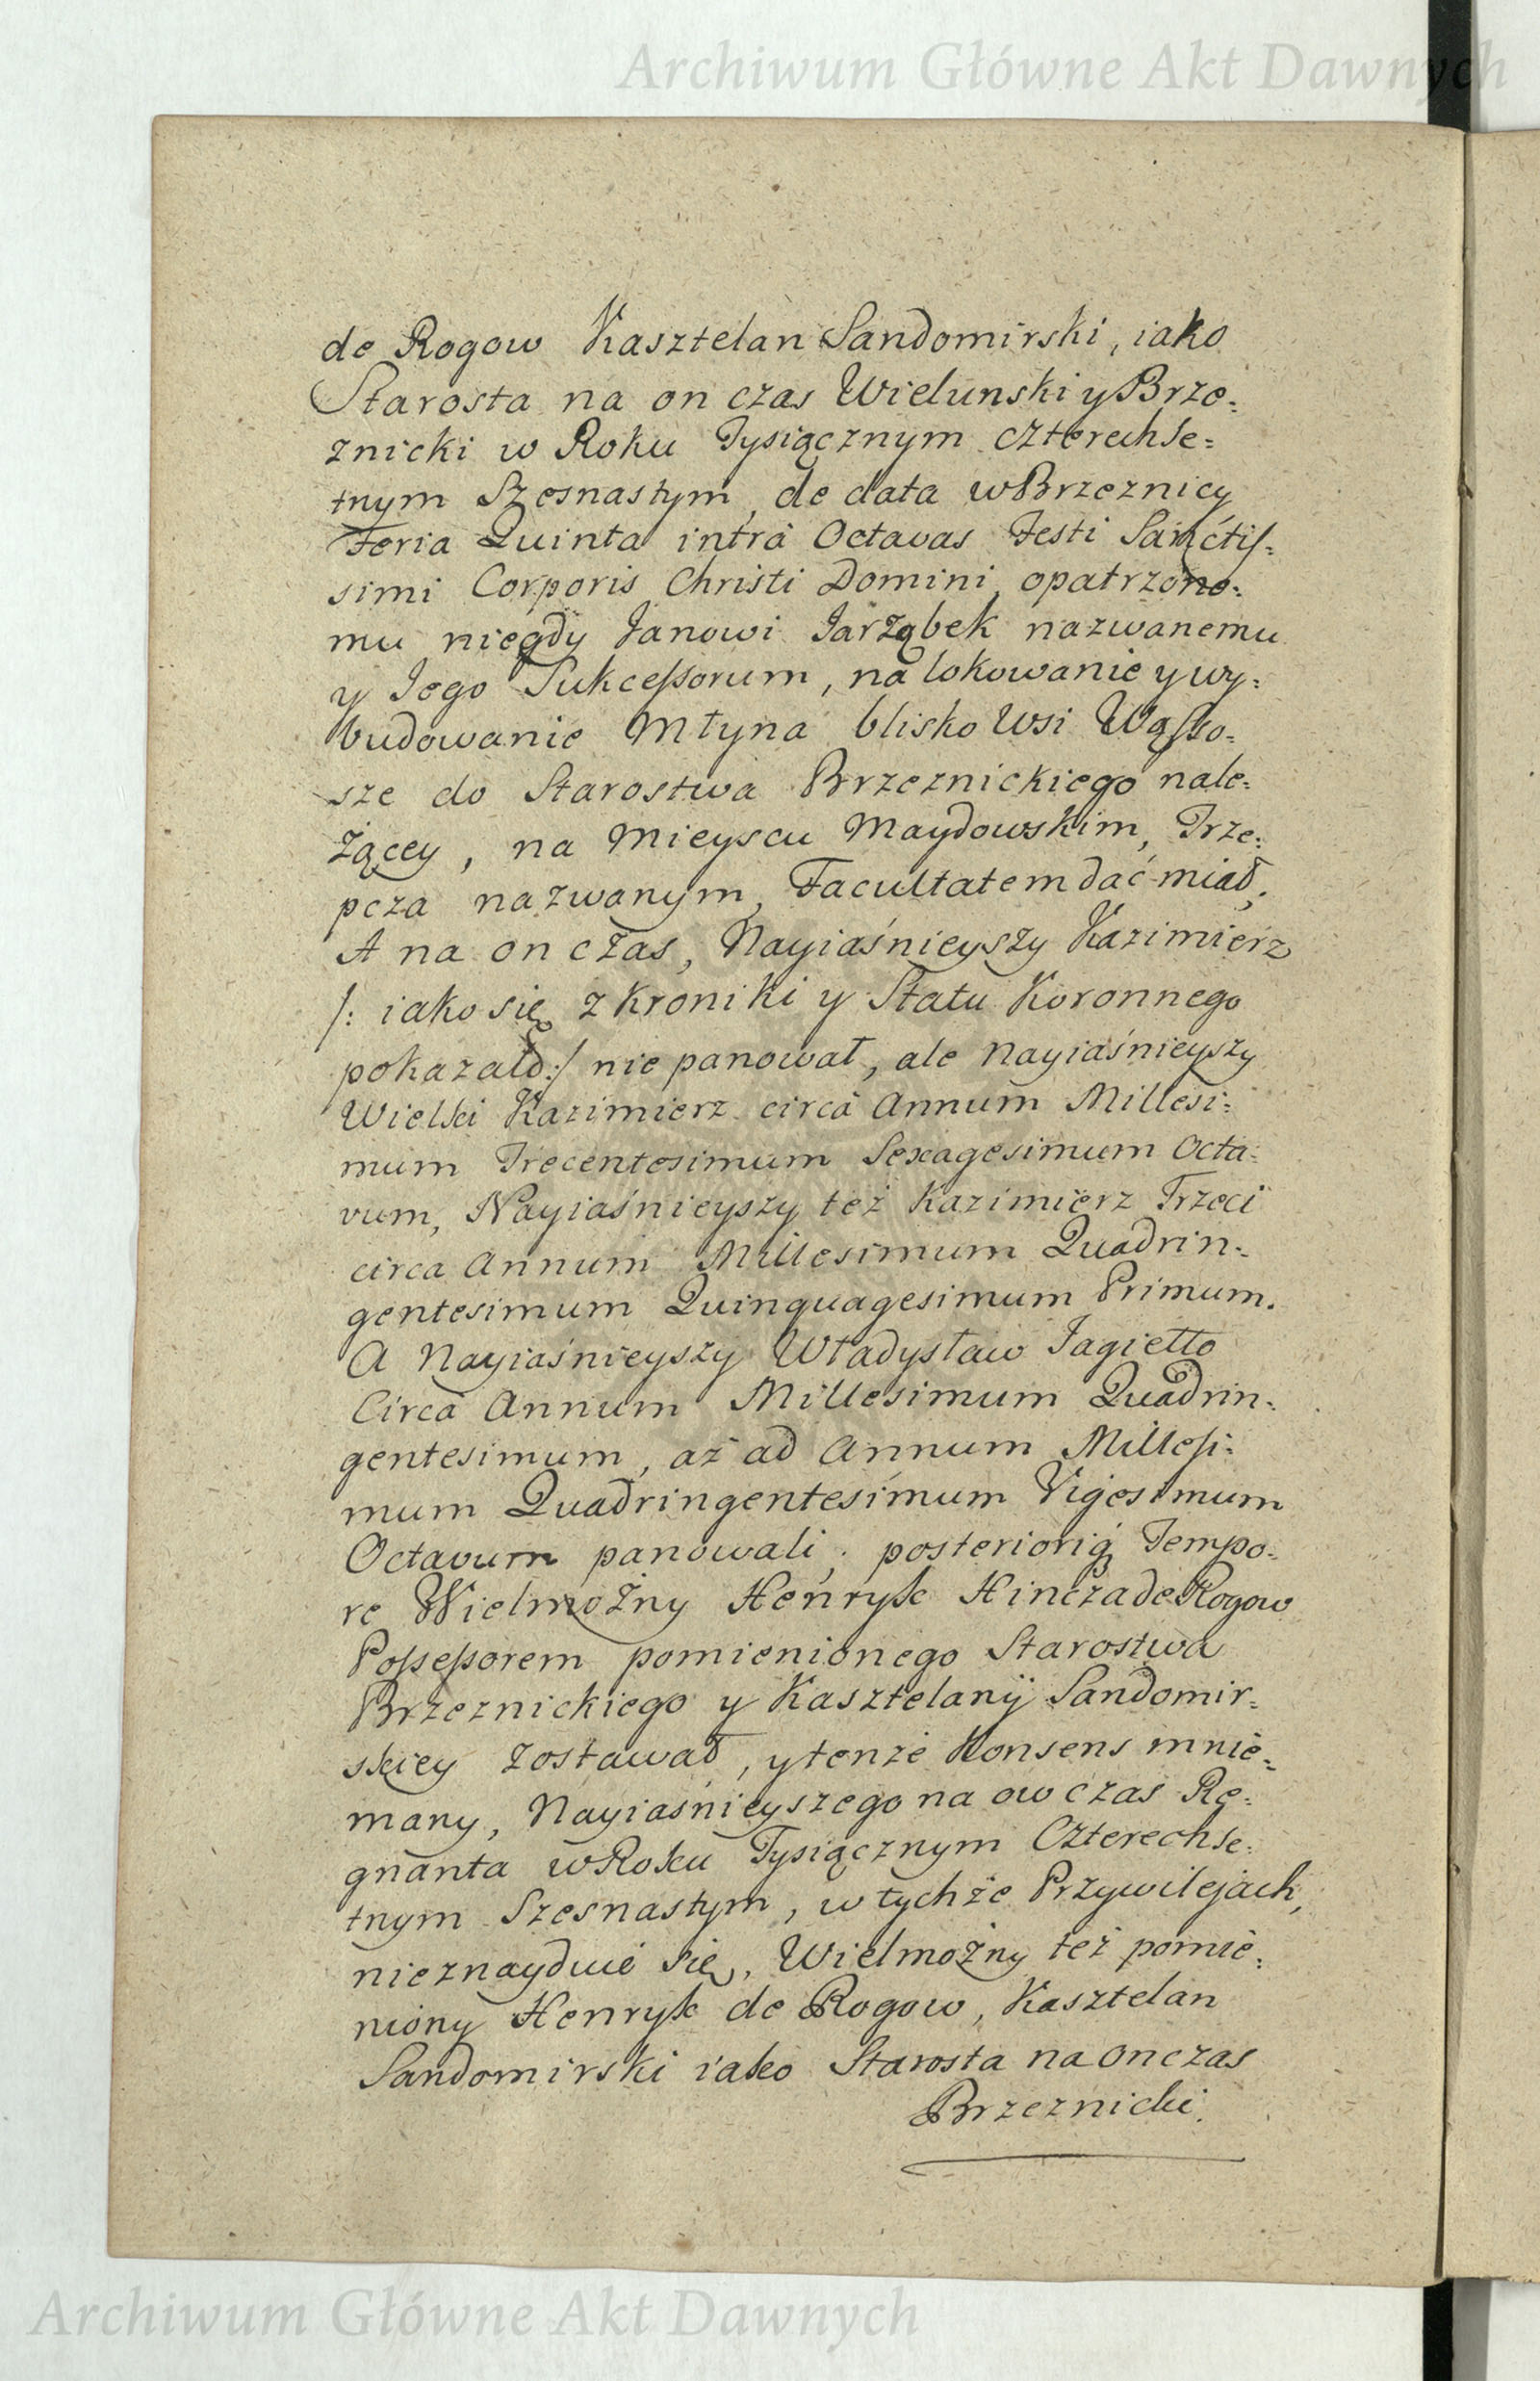 Archiwum Główne Akt Dawnych
de Rogow Kasztelan Sandomirski, iako
Starosta na on czas Wielunski y Brze:
znicki w Roku Tysiącznym czterechse:
tnym Szesnastym, de data w Brzeznicy
Feria Quinta intrà Octavas Festi Sanctis:
simi Corporis Christi Domini, opatrzone:
mu niegdy Janowi Jarząbek nazwanemu
y Jego Sukcessorum, na lokowanie y wy:
budowanie Młyna blisko Wsi Wąsso:
sze do Starostwa Brzeznickiego nale:
żącey, na Mieyscu Maydowskim, Trze:
pcza nazwanym, Facultatem dać miał,
A na on czas, Nayiaśnieyszy Kazimierz
/: iako się z Kroniki y Statu Koronnego
pokazało:/ nie panował, ale Nayiaśnieyszy
Wielki Kazimierz circà Annum Millesi:
mum Trecentesimum Sexagesimum Octa:
vum, Nayiaśnieyszy też Kazimierz Trzeci
circa Annum Millesimum Quadrin:
gentesimum Quinquagesimum Primum.
A Nayiaśnieyszy Władysław Jagiełło
Circà Annum Millesimum Quadrin:
gentesimum, aż ad Annum Millesi:
mum Quadringentesimum Vigesimum
Octavum panowali, posteriorią Tempo:
re Wielmożny Henryk Hincza de Rogow
Possessorem pomienionego Starostwa
Brzeznickiego y Kasztelanÿ Sandomir:
skiey zostawał, y tenże Konsens mnie:
many, Nayiaśnieyszego na ow czas Re:
gnanta w Roku Tysiącznym Czterechse:
tnym Szesnastym, w tychże Przywilejach,
nieznayduie się, Wielmożny też pomie:
niony Henryk de Rogow, Kasztelan
Sandomirski iako Starosta na on czas
Brzeznicki.
Archiwum Główne Akt Dawnych